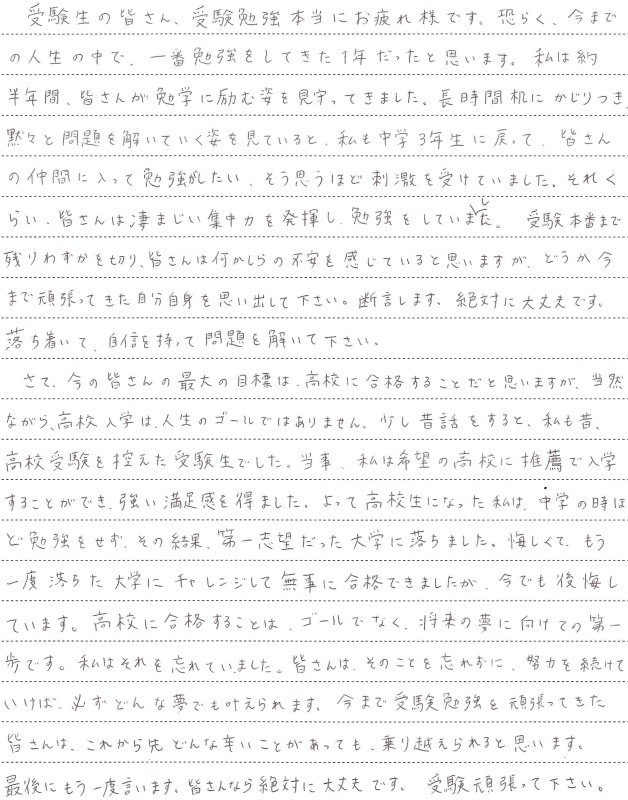 受験生の皆さん、受験勉強本当にお疲れ様です。恐らく、今まで
の人生の中で、一番勉強をしてきた1年だったと思います。私は約
半年間、皆さんが勉学に励む姿を見守ってきました。長時間机にかじりつき、
黙々と問題を解いていく姿を見ていると、私も中学3年生に戻って、皆さん
の仲間に入って勉強がしたい、そう思うほど刺激を受けていました。それく
らい、皆さんは凄まじい集中力を発揮し、勉強をしていました。受験本番まで
残りわずかを切り、皆さんは何かしらの不安を感じていると思いますが、どうか今
まで頑張ってきた自分自身を思い出して下さい。断言します、絶対に大丈夫です。
落ち着いて、自信を持って問題を解いて下さい。
さて、今の皆さんの最大の目標は、高校に合格することだと思いますが、当然
ながら、高校入学は、人生のゴールではありません。少し昔話をすると、私も昔、
高校受験を控えた受験生でした。当事、私は希望の高校に推薦で入学
することができ、強い満足感を得ました。よって高校生になった私は、中学の時ほ
ど勉強をせず、その結果、第一志望だった大学に落ちました。悔しくて、もう
一度落ちた大学にチャレンジして無事に合格できましたが、今でも後悔し
ています。高校に合格することは、ゴールでなく、将来の夢に向けての第一
歩です。私はそれを忘れていました。皆さんは、そのことを忘れずに、努力を続けて
いけば、必ずどんな夢でも叶えられます。今まで受験勉強を頑張ってきた
皆さんは、これから先どんな辛いことがあっても、乗り越えられると思います。
最後にもう一度言います、皆さんなら絶対に大丈夫です。受験頑張って下さい。